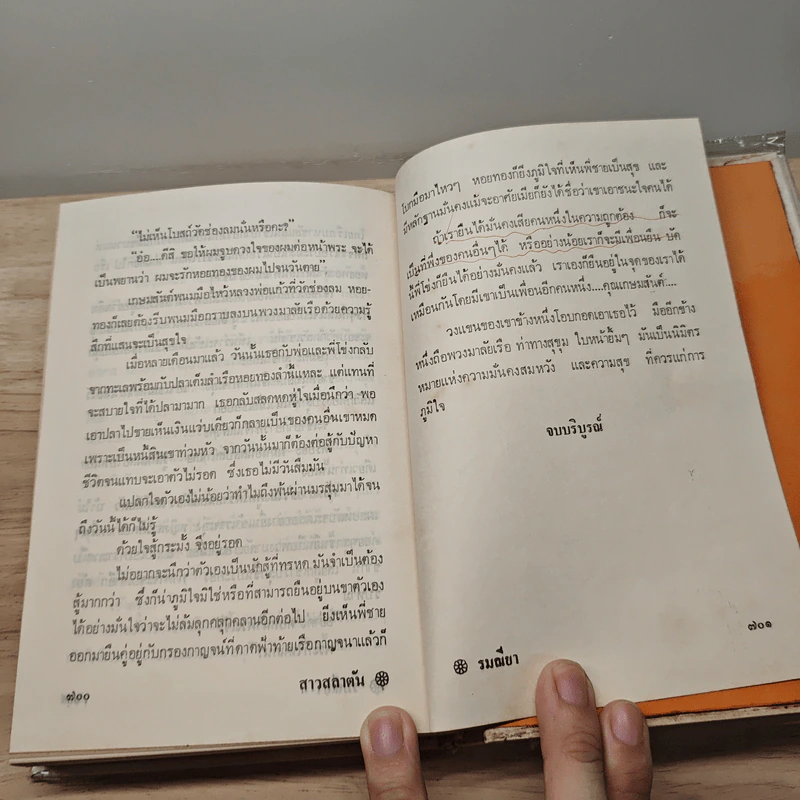 "ไม่เห็นโบสถ์วัดช่องลมนั่นหรือคะ?"
"อ้อ....ดีสิ ขอให้ผมจูบดวงใจของผมต่อหน้าพระ จะได้
เป็นพยานว่า ผมจะรักหอยทองของผมไปจนวันตาย"
เกษมสันต์พนมมือไหว้หลวงพ่อแก้วที่วัดช่องลม หอย-
ทองก็เลยต้องรีบพนมมือกราบลงบนพวงมาลัยเรือด้วยความรู้
สึกที่แสนจะเป็นสุขใจ
เมื่อหลายเดือนมาแล้ว วันนั้นเธอกับพ่อและพี่โข่งกลับ
จากทะเลพร้อมกับปลาเต็มลำเรือหอยทองลำนี้แหละ แต่แทนที่
จะสบายใจที่ได้ปลามามาก เธอกลับสลดหดหู่ใจเมื่อนึกว่า พอ
เอาปลาไปขายเห็นเงินแว่บเดียวก็กลายเป็นของคนอื่นเขาหมด
เพราะเป็นหนี้สินเขาท่วมหัว จากวันนั้นมาก็ต้องต่อสู้กับปัญหา
ชีวิตจนแทบจะเอาตัวไม่รอด ซึ่งเธอไม่มีวันลืมมัน
แปลกใจตัวเองไม่น้อยว่าทำไมถึงพ้นผ่านมรสุมมาได้จน
ถึงวันนี้ได้ก็ไม่รู้
ด้วยใจสู้กระมั้ง จึงอยู่รอด
ไม่อยากจะนึกว่าตัวเองเป็นนักสู้ที่ทรหด มันจำเป็นต้อง
สู้มากกว่า ซึ่งก็น่าภูมิใจมิใช่หรือที่สามารถยืนอยู่บนขาตัวเอง
ได้อย่างมั่นใจว่าจะไม่ล้มลุกคลุกคลานอีกต่อไป ยิ่งเห็นพี่ชาย
ออกมายืนคู่อยู่กับกรองกาญจน์ที่ดาดฟ้าท้ายเรือกาญจนาแล้วก็
๗๐๐
สาวสลาตัน
โบกมือมาไหวๆ หอยทองก็ยิ่งภูมิใจที่เห็นพี่ชายเป็นสุข และ
มีหลักฐานมั่นคงแม้จะอาศัยเมียก็ยังได้ชื่อว่าเขาเอาชนะใจคนได้
ถ้าเรายืนได้มั่นคงเสียคนหนึ่งในความถูกต้อง ก็จะ
เป็นที่พึ่งของคนอื่นๆได้ หรืออย่างน้อยเราก็จะมีเพื่อนยืน บัด
นี้พี่โข่งก็ยืนได้อย่างมั่นคงแล้ว เราเองก็ยืนอยู่ในจุดของเราได้
เหมือนกันโดยมีเขาเป็นเพื่อนอีกคนหนึ่ง....คุณเกษมสันต์....
วงแขนของเขาข้างหนึ่งโอบกอดเอาเธอไว้ มืออีกข้าง
หนึ่งถือพวงมาลัยเรือ ท่าทางสุขุม ใบหน้ายิ้มๆ มันเป็นนิมิตร
หมายแห่งความมั่นคงสมหวัง และความสุข ที่ควรแก่การ
ภูมิใจ
จบบริบูรณ์
๗๐๑
รมณียา